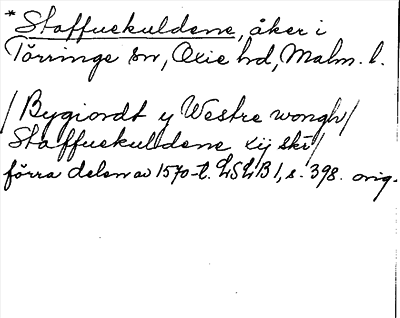 * Staffuekuldene, åker i
Törringe sn, Oxie hd, Malm. l.
/Bygiordt y Westre wongh/
Staffuekuldene xij skr/
förra delen av 1570-t. LSLB 1, s. 398. orig.